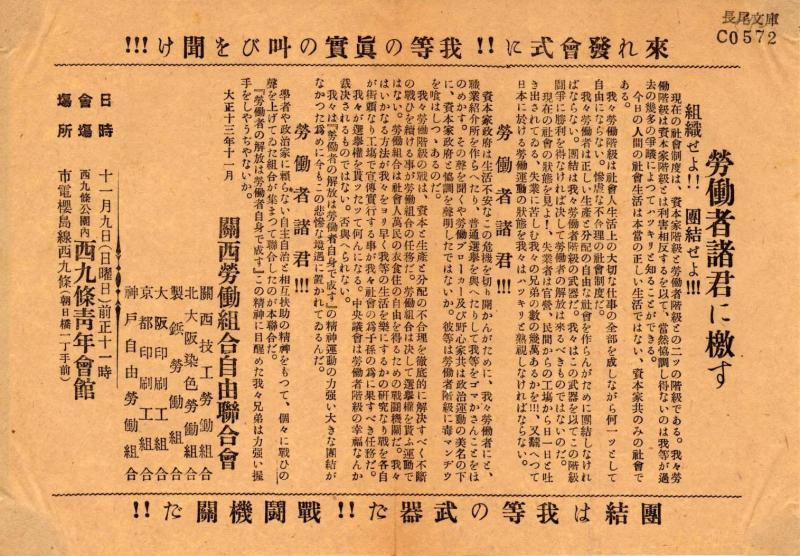 長尾文庫
C0572
來れ發會式に!! 我等の眞實の叫びを聞け!!!
勞働者諸君に檄す
組織ぜよ!! 團結ぜよ!!!
現在の社會制度は、資本家階級と勞働者階級との二ツの階級である。我々勞
働階級は資本家階級とは利害相反するを以て、當然協調し得ないのは我等が過
去の幾多の爭議によつてハツキリと知ることができる。
今日の人間の社會生活は本當の正しい生活ではない、資本家共のみの社會で
ある。
我々勞働階級は社會人生活上の大切な仕事の全部を成しながら何一ッとして
自由にならない。慘虐な不合理の社會制度だ。
我々勞働者は正しい生產と分配の自由な社會を作らんがために團結しなけれ
ばならない。團結は我々勞働者階級の武器だ、我々はこの武器を以てこの階級
鬪爭に勝利を得なければ決して勞働者の解放は來るべきものではないのだ。
現在の社會の狀態を見よ!、失業者は官營、民間からの工場から日一日と吐
き出されてゐる、失業に苦しむ我々の兄弟の數の幾萬あるかを!!!、又飜へつて
日本に於ける勞働運動の狀態を我々はハツキリと熟視しなければならない。
勞働者諸君!!!
資本家政府は生活不安なこの危機を切り開かんがために、我々勞働者にと、
職業紹介所を作らへたり、普通選擧を與へたりして我等をゴマかさんことをは
のめかす。その聲を聞くや勞働ブローカー及び野心家共は政治運動の美名の下
に、資本家政府との協調を聲明したではないか。彼等は勞働者階級に毒マンヂウ
を喰はしつゝあるのだ。
我々勞働階級の戰は、資本と生產と分配の不合理を徹底的に解決すべく不斷
の戰ひを續ける事が勞働組合の任務だ。勞働組合は決して選擧權を貰ふ運動で
はない。勞働組合は社會人萬民の衣食住の自由を得るための戰鬪機關だ。我々
はいかなる方法が我々をヨリ早く我等の生活を樂にするかの研究なり戰を各自
が街頭なり工場で宣傳實行する事が我々社會の爲め子孫の爲に果すべき任務だ。
我々が選擧權を貰ッたッて何んになる。中央議會は勞働者階級の幸福なんか
裁決されるものではない。否與へられない。
我々は『勞働者の解放は勞働者自身で成す』の精神運動の力强い大きな團結が
なかつた爲めに今もこの悲慘な境遇に置かれてゐるんだ。
勞働者諸君!!!
學者や政治家に賴らない自主自治と相互扶助の精神をもつて、個々に戰ひの
聲を上げてゐた組合が集まつて聯合したのが本聯合だ。
『勞働者の解放は勞働者自身で成す』この精神に目醒めた我々兄弟は力强い握
手をしやうぢやないか。
大正十三年十一月
關西勞働組合自由聯合會
關西技工勞働組合
北大阪染色勞働組合
製鋲勞働組合
大阪印刷工組合
京都印刷工組合
神戸自由勞働組合
日時 十一月九日(日曜日)前正十一時
會塲 西九條公園內 西九條靑年會館
塲所 市電櫻島線西九條(朝日橋一丁手前)
團結は我等の武器だ!! 戰鬪機關だ!!